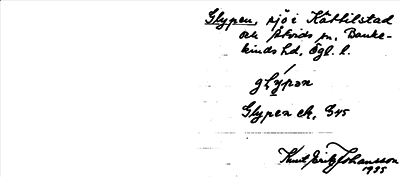 Glypen, sjö i Kättilstad
och Åtvids sn, Banke-
kinds hd, Ögl. l.
glýpən
Glypen ek. G45
Knut Fritz Johansson
1935